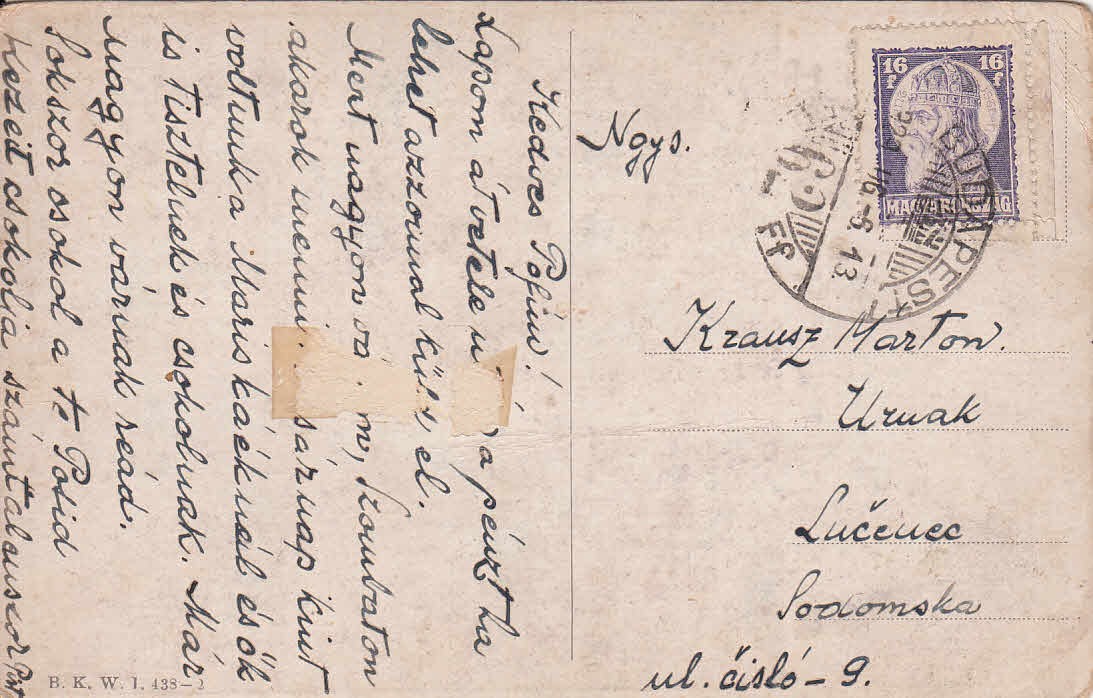 Kedves Pofim!
Lapom átvétele u a pénzt ha
lehet azzonnal küld el.
Mert nagyon va m, Szombaton
akarok menni. sárnap kint
voltunk a Mariskáéknál és ők
is tisztelnek és csokolnak. Már
nagyon várnak reád.
Sokszor csokol a te Pofid
Kezeit csokolja számtalanszor
Ngys.
Krausz Marton.
Urnak
Lučenec
Sodomska
ul. čisló - 9.
16 f 16 f
MAGYARORSZÁG
BUDAPEST
B. K. W. I. 438-2